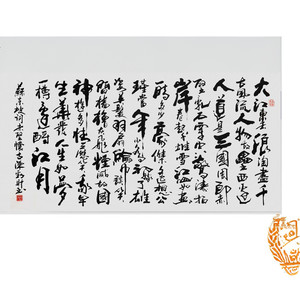 大江東去浪淘盡千
古風流人物故壘西邊
人道是三國周郎赤
壁亂石穿空驚濤拍
岸卷起千堆雪江山如畫
一時多少豪傑遙想公
瑾當年小喬初嫁了雄
姿英發羽扇綸巾談笑
間檣櫓灰飛煙滅故國
神遊多情應笑我早
生華髮人生如夢
一樽還酹江月
蘇東坡詞赤壁懷古